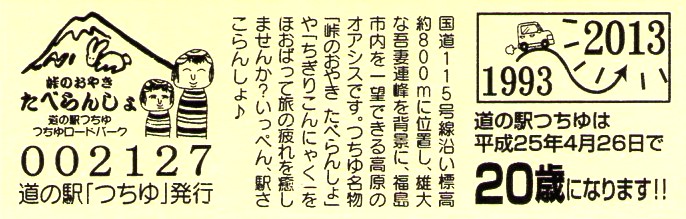 峠のおやき
たべらんしょ
道の駅つちゆ
つちゆロードパーク
002127
道の駅「つちゆ」発行
国道115号線沿い標高
約800mに位置し、雄大
な吾妻連峰を背景に、福島
市内を一望できる高原の
オアシスです。つちゆ名物
「峠のおやき たべらんしょ」
や「ちぎりこんにゃく」を
ほおばって旅の疲れを癒し
ませんか？いっぺん、駅さ
こらんしょ♪
2013
1993
道の駅つちゆは
平成25年4月26日で
20歳になります!!